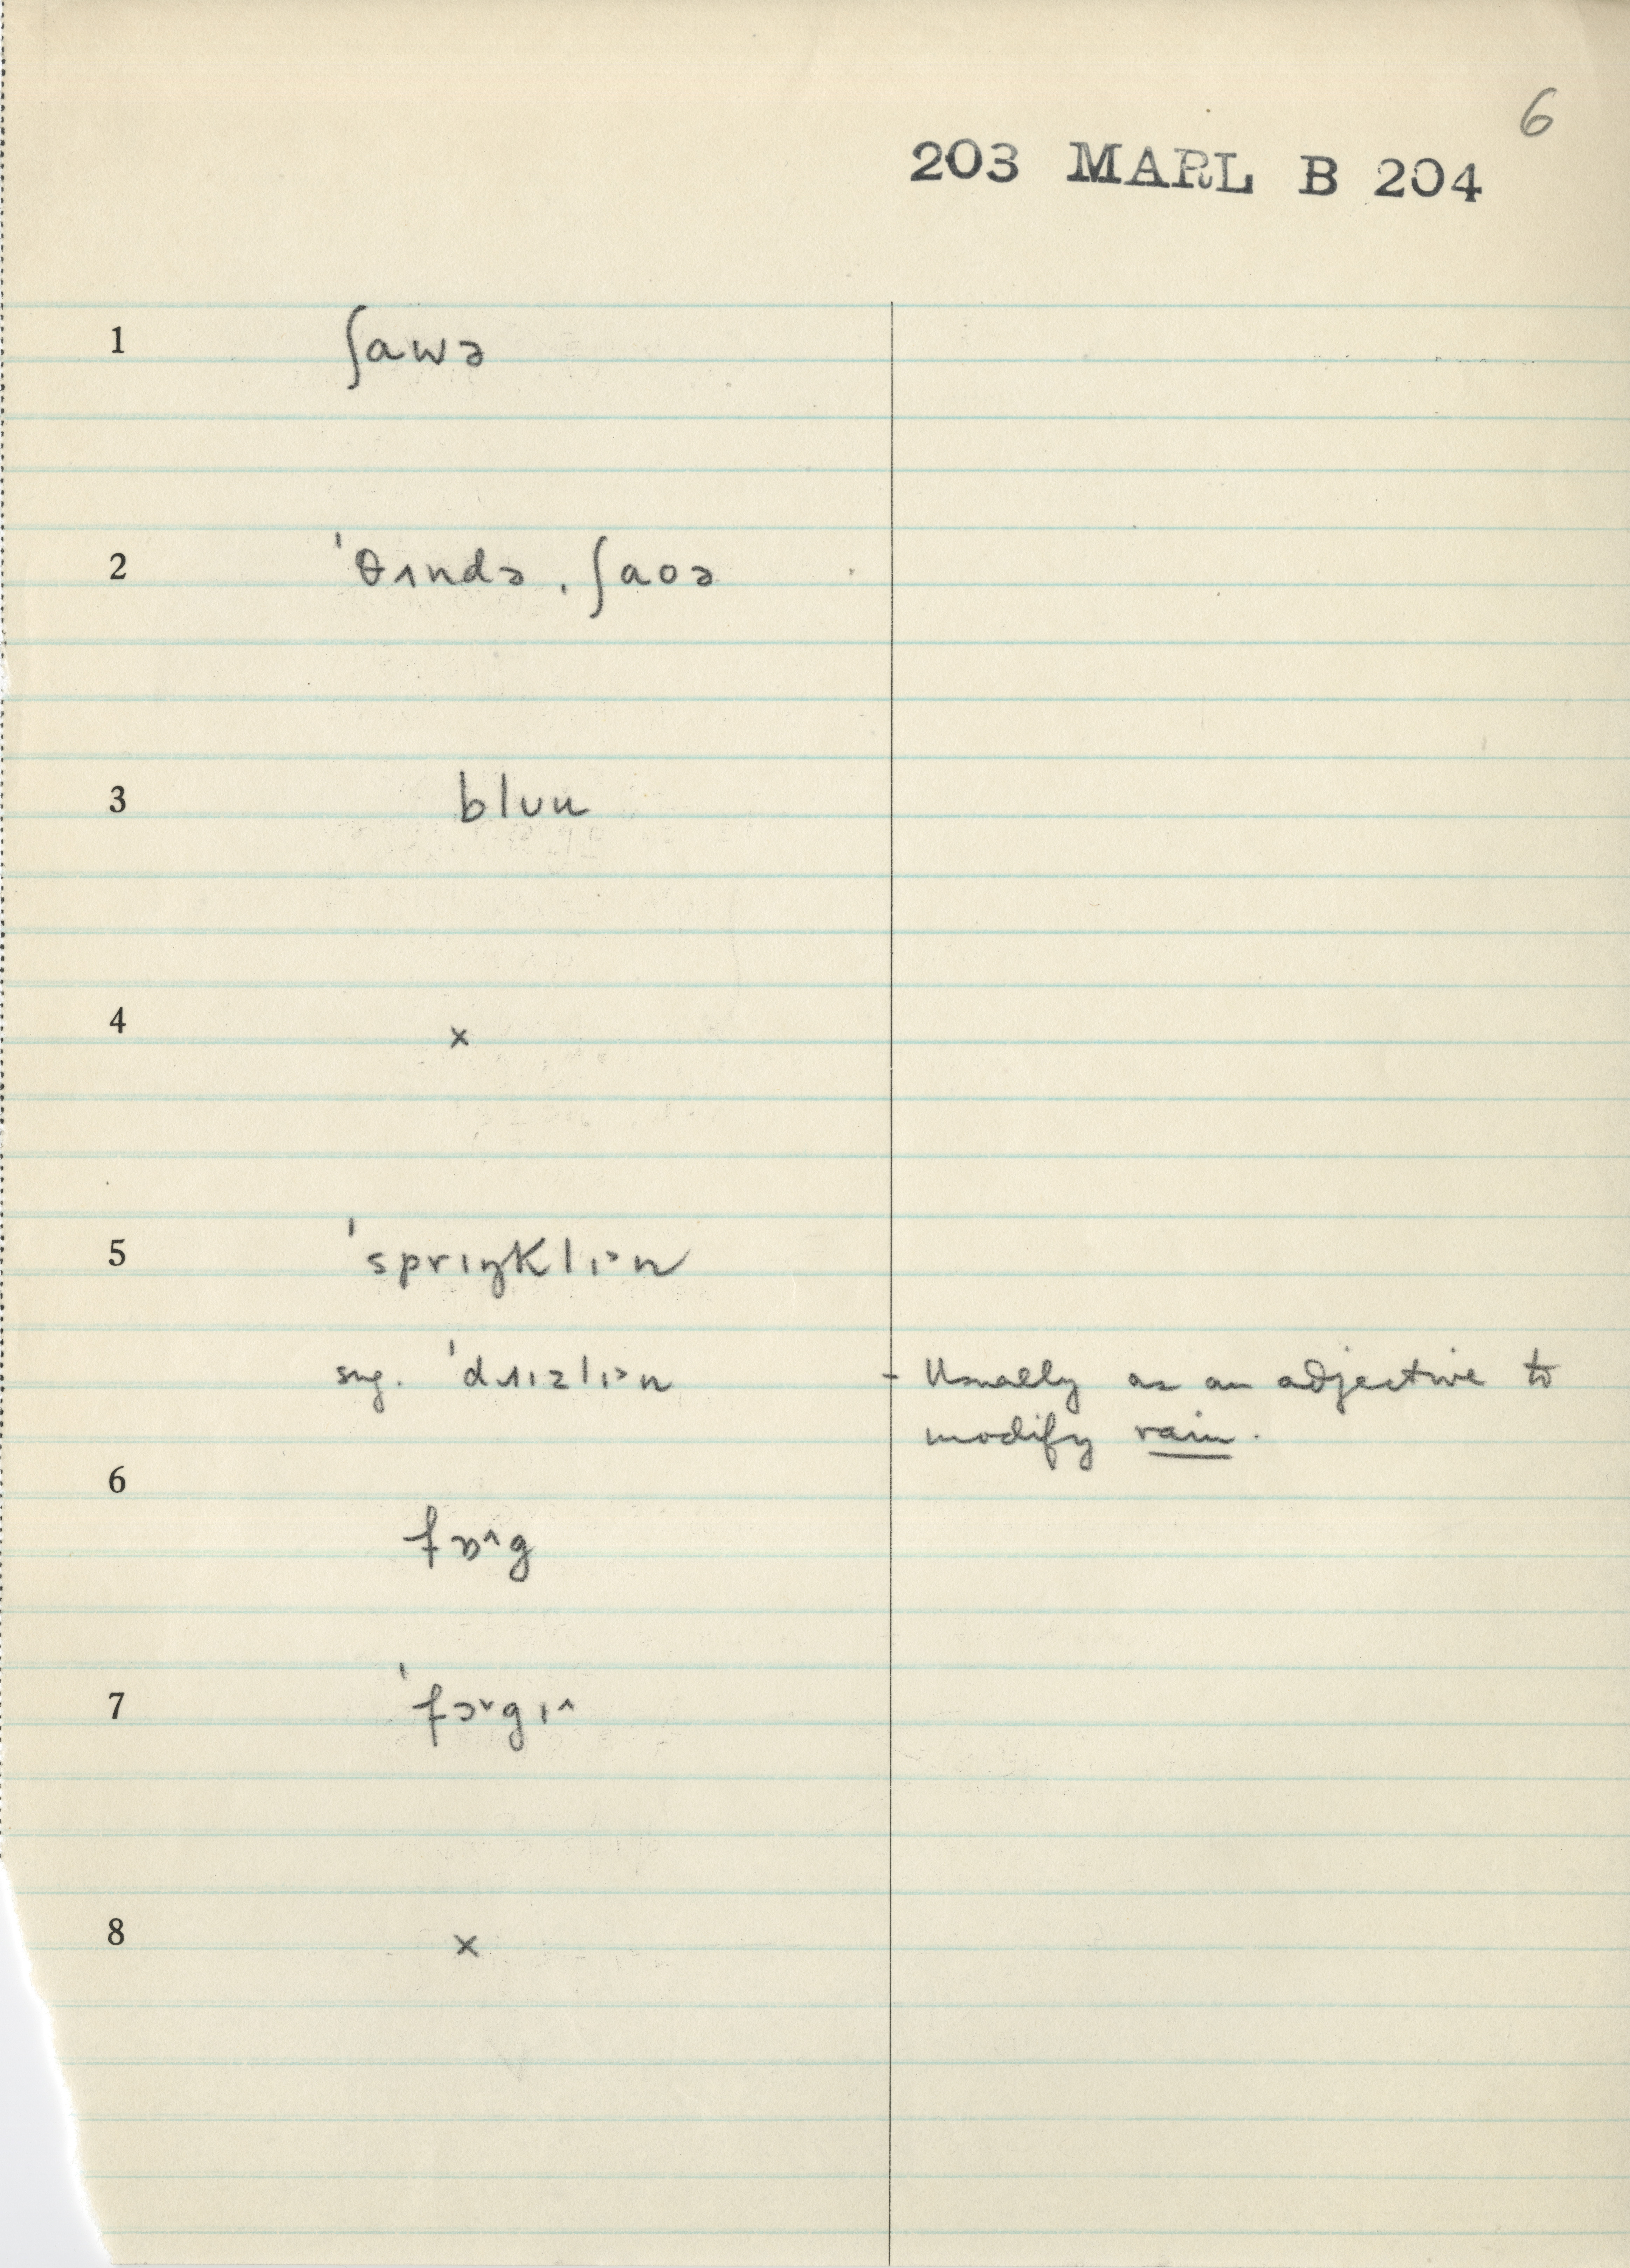 6
203 MARL B 204
1 ʃawə
2 ˈθʌndə ˌʃaoə
3 bluu
4 ×
5 ˈsprɪŋklɪ˃n
sug. ˈdɹɪzlɪ˃n - Usually as an adjective to
modify rain.
6
fɒ^g
7 ˈfɔ˅gɪ^
8 ×